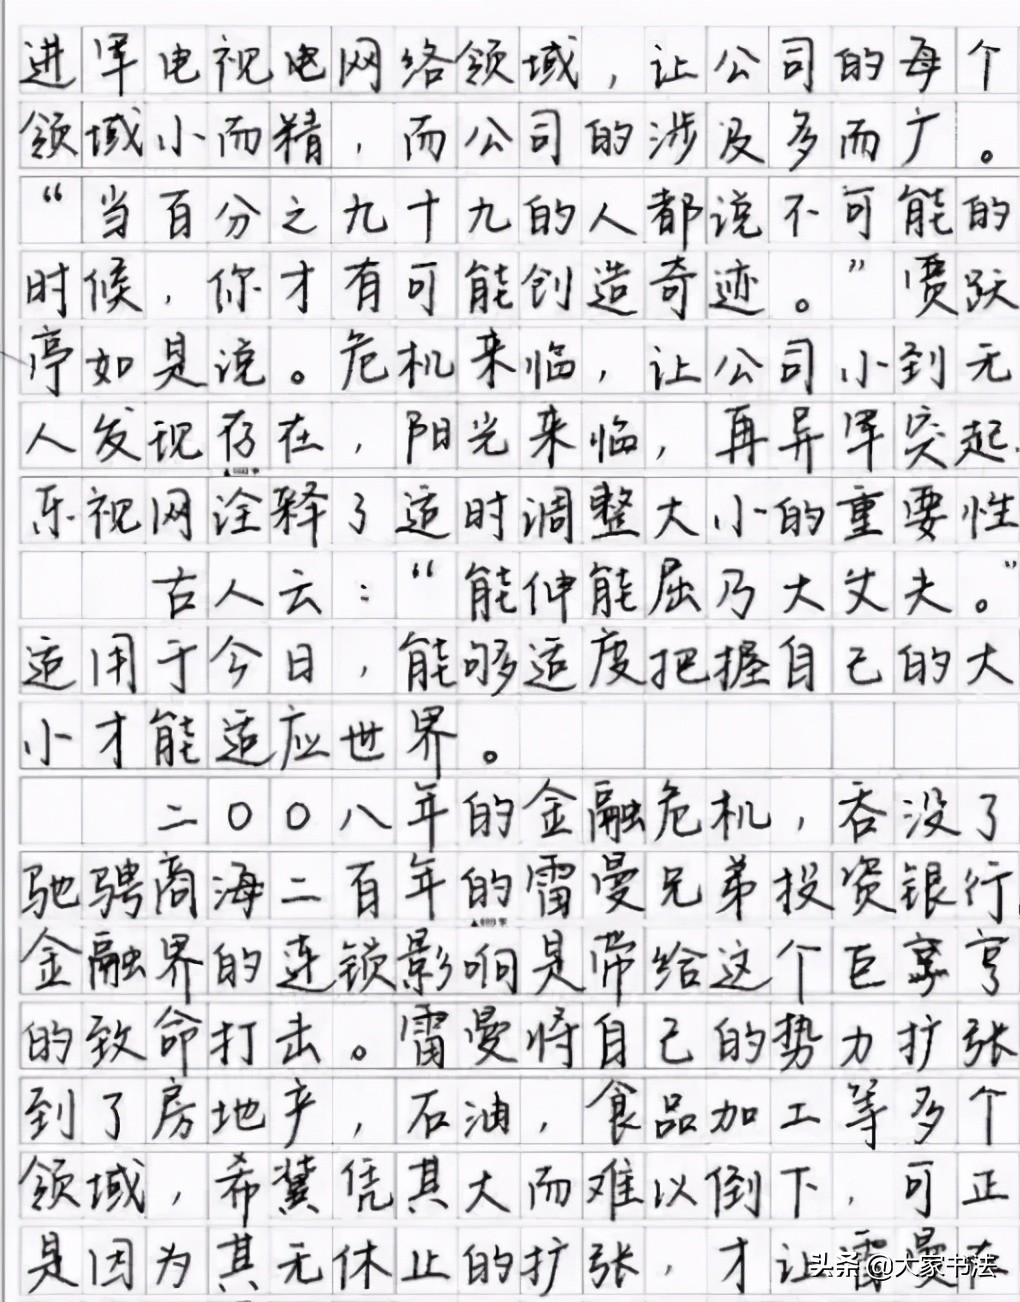 进军电视电网络领域，让公司的每个
领域小而精，而公司的涉及多而广。
“当百分之九十九的人都说不可能的
时候，你才有可能创造奇迹。”贾跃
亭如是说。危机来临，让公司小到无
人发现存在，阳光来临，再异军突起.
乐视网诠释了适时调整大小的重要性
古人云：“能伸能屈乃大丈夫。”
适用于今日，能够适度把握自己的大
小才能适应世界。
二〇〇八年的金融危机，吞没了
驰骋商海二百年的雷曼兄弟投资银行.
金融界的连锁影响是带给这个巨亨
的致命打击。雷曼将自己的势力扩张
到了房地产，石油，食品加工等多个
领域，希冀凭其大而难以倒下，可正
是因为其无休止的扩张，才让雷曼在
头条 @大家书法